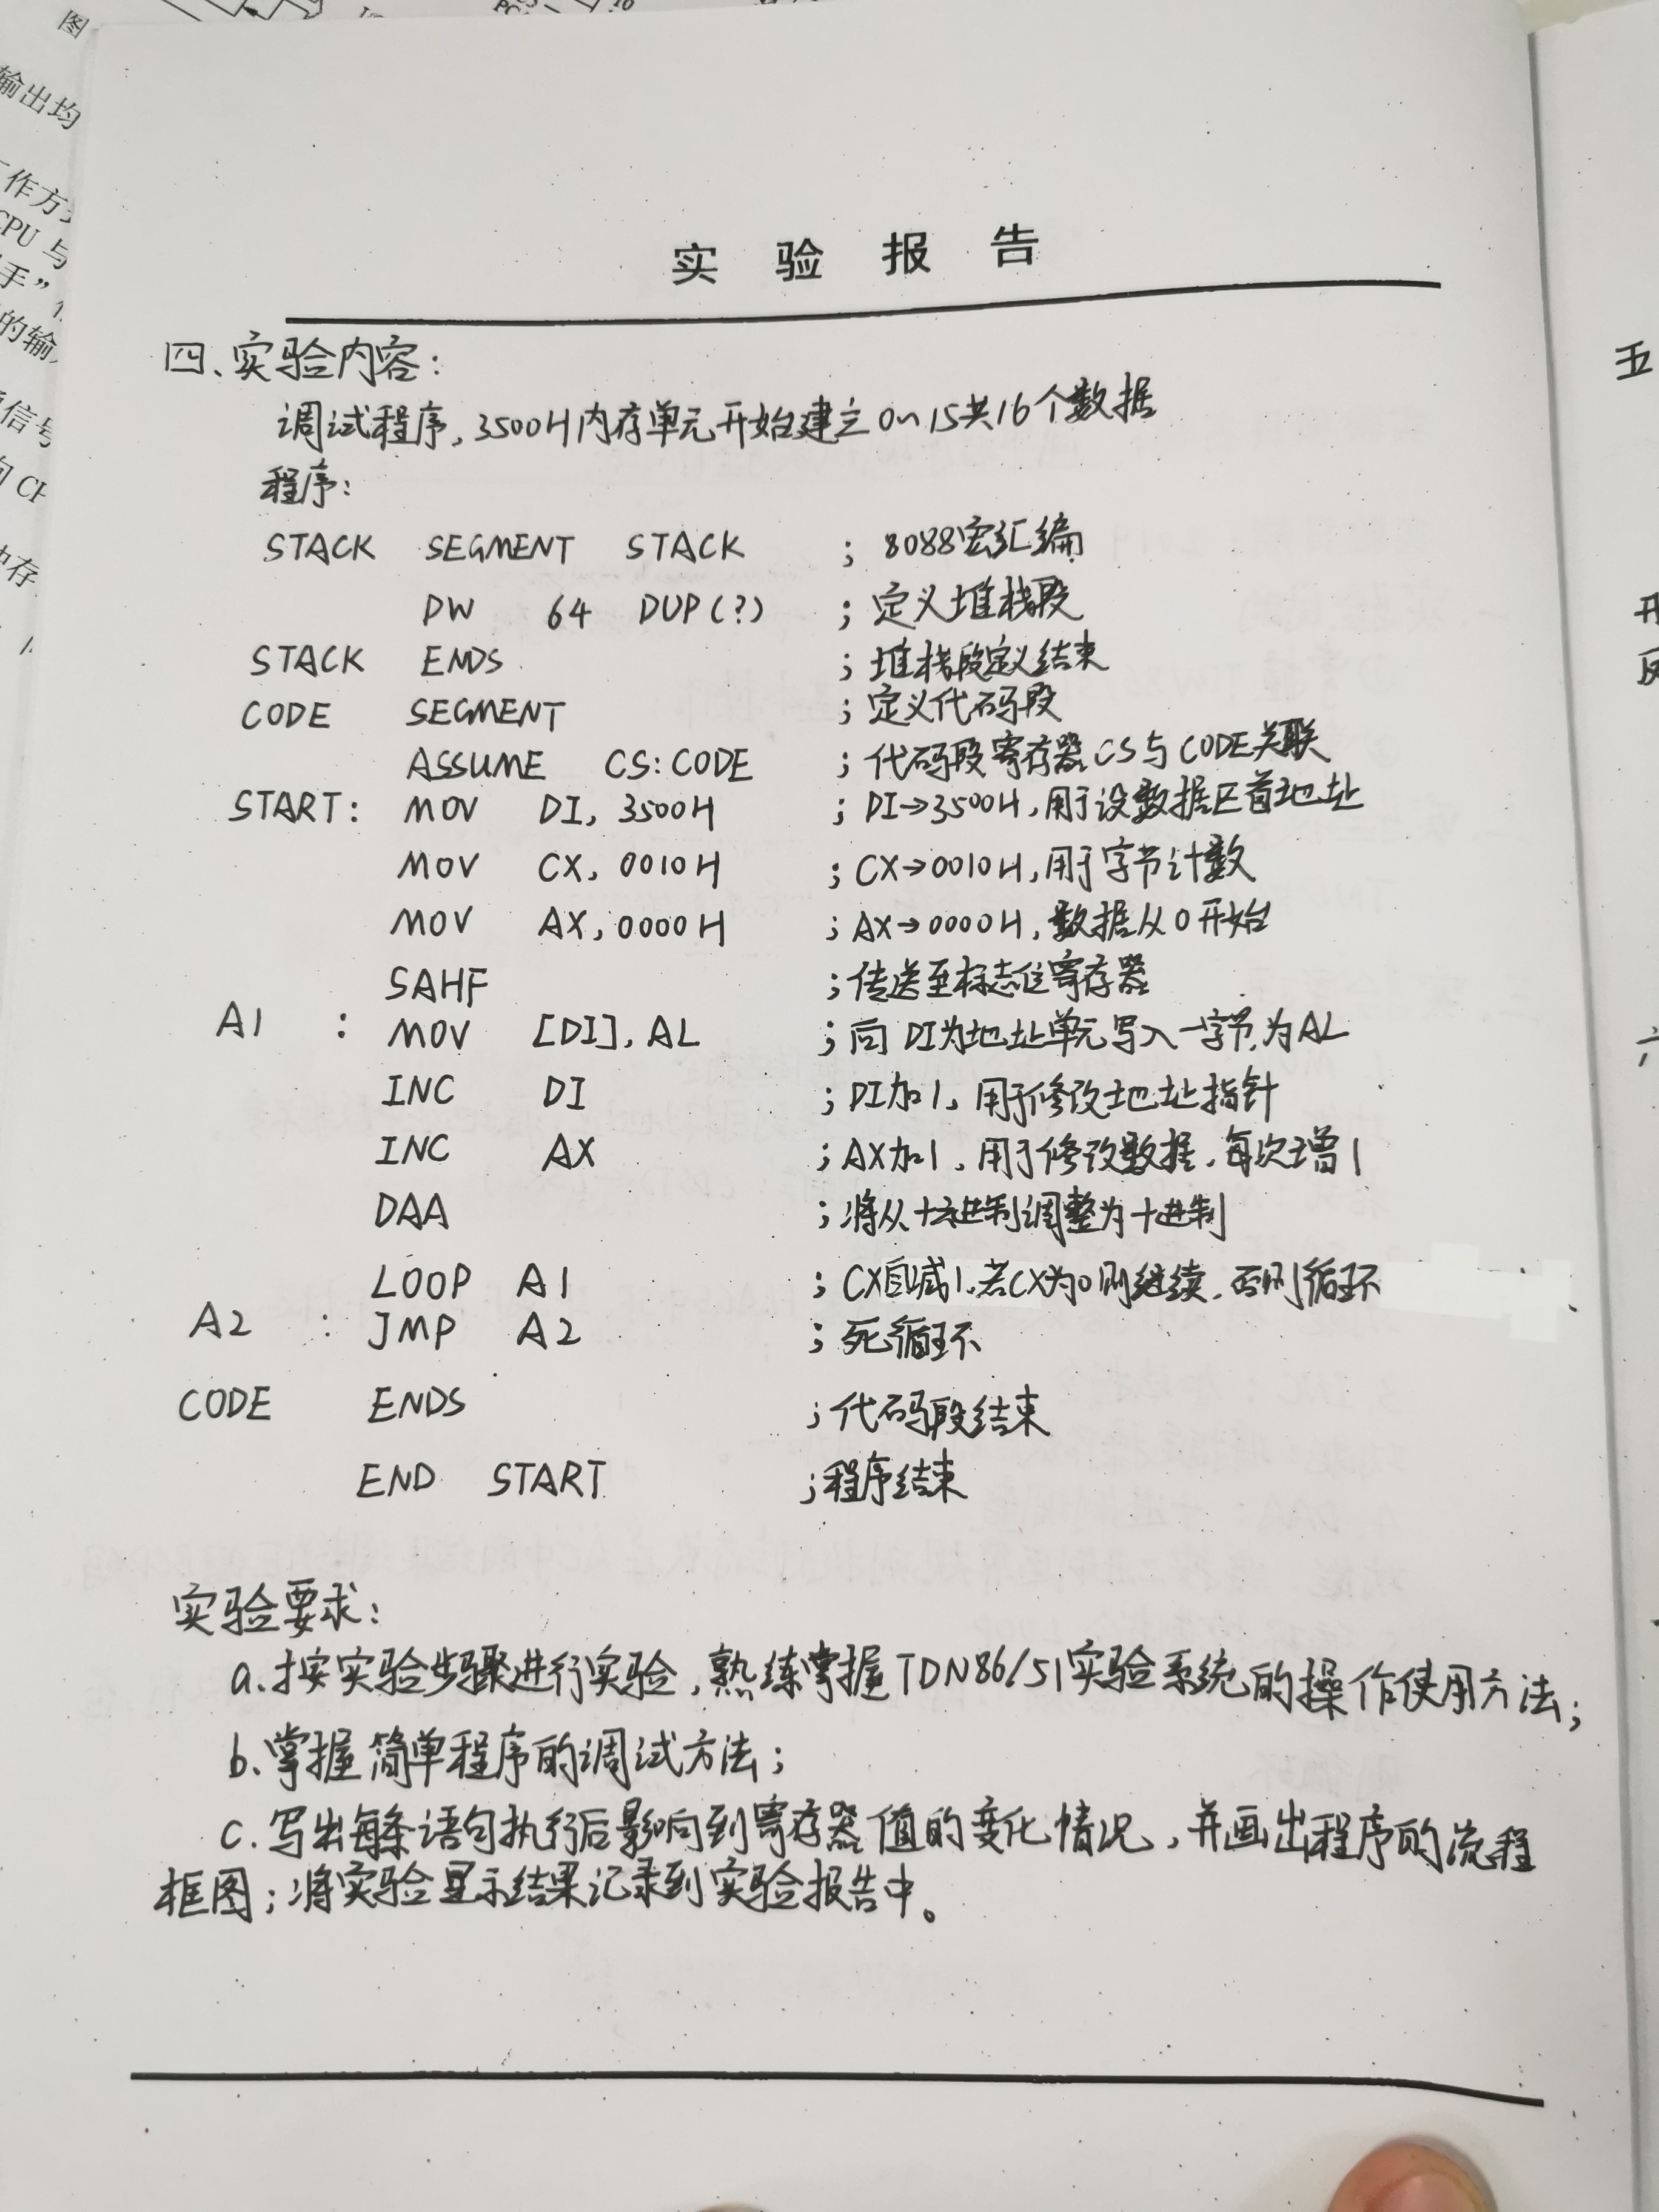 图
输出均
作方
CPU 与
手”
的输
信号
中存
实 验 报 告
四、实验内容:
调试程序,3500H内存单元开始建立0~15共16个数据
程序:
STACK SEGMENT STACK ; 8088宏汇编
DW 64 DUP(?) ; 定义堆栈段
STACK ENDS ; 堆栈段定义结束
CODE SEGMENT ; 定义代码段
ASSUME CS:CODE ; 代码段寄存器CS与CODE关联
START: MOV DI, 3500H ; DI→3500H,用于设数据区首地址
MOV CX, 0010H ; CX→0010H,用于字节计数
MOV AX, 0000H ; AX→0000H,数据从0开始
SAHF ; 传送至标志位寄存器
A1 : MOV [DI], AL ; 向DI为地址单元写入一字节,为AL
INC DI ; DI加1,用于修改地址指针
INC AX ; AX加1,用于修改数据,每次增1
DAA ; 将从十六进制调整为十进制
LOOP A1 ; CX自减1,若CX为0则继续,否则循环
A2 : JMP A2 ; 死循环
CODE ENDS ; 代码段结束
END START ; 程序结束
实验要求:
a.按实验步骤进行实验,熟练掌握TDN86/51实验系统的操作使用方法;
b.掌握简单程序的调试方法;
c.写出每条语句执行后影响到寄存器值的变化情况,并画出程序的流程
框图;将实验显示结果记录到实验报告中。
五